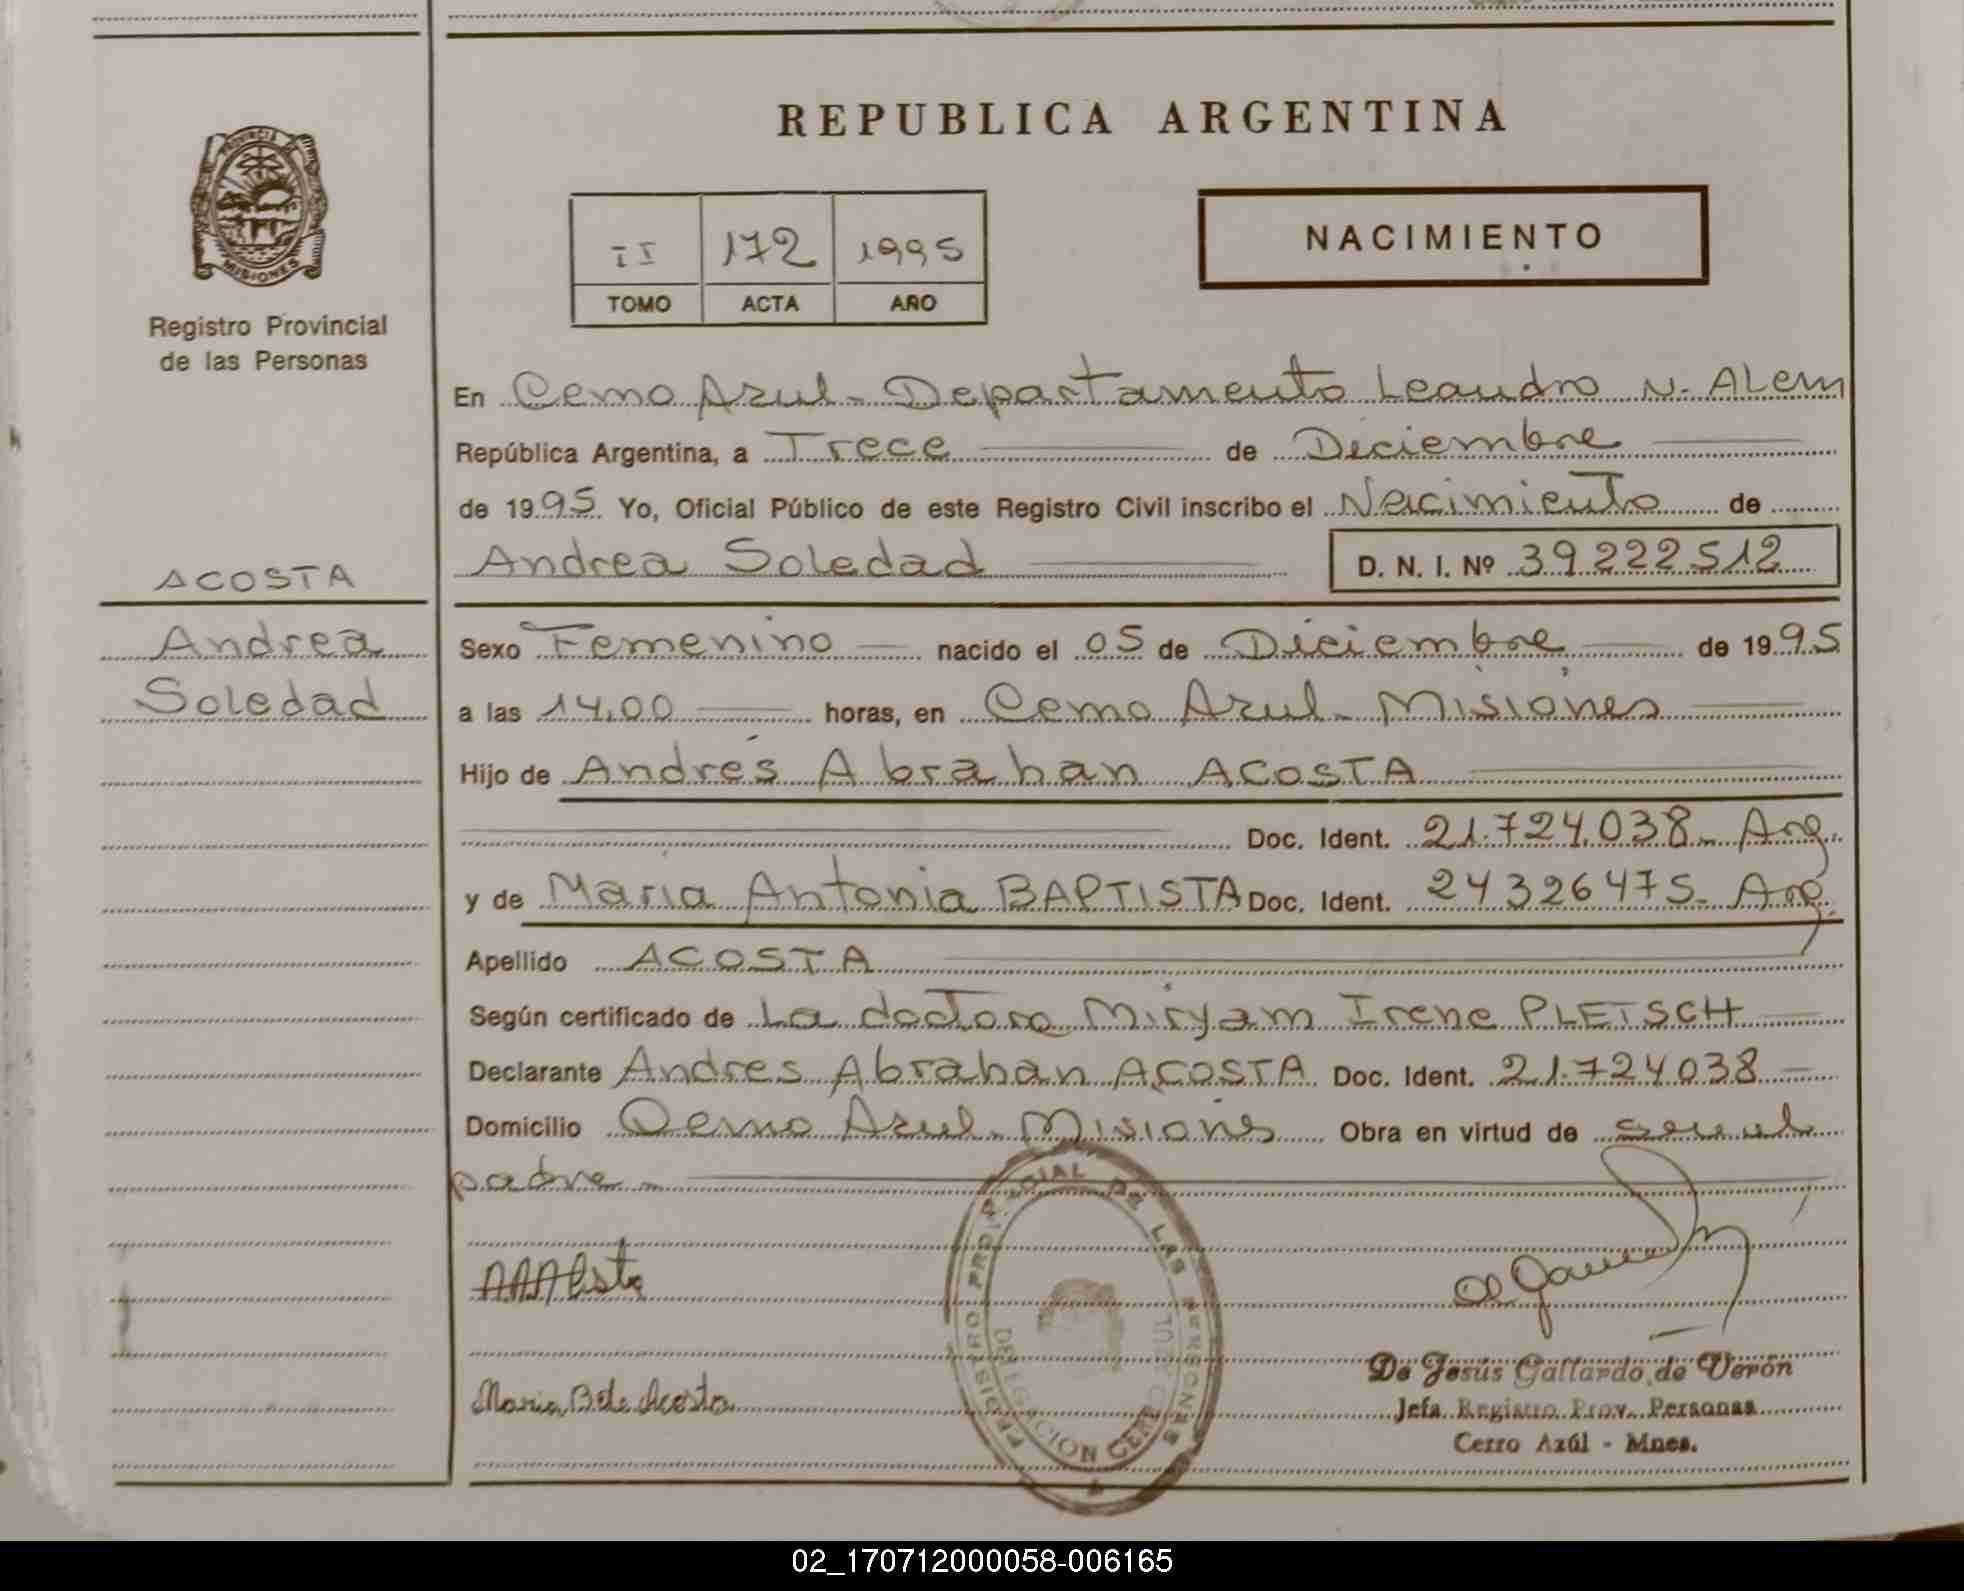 REPUBLICA ARGENTINA
PROVINCIA
MISIONES
Registro Provincial
de las Personas
II 172 1995
TOMO ACTA AÑO
NACIMIENTO
En Cerro Azul - Departamento Leandro N. ALem
República Argentina, a Trece de Diciembre
de 1995 Yo, Oficial Público de este Registro Civil inscribo el Nacimiento de
Andrea Soledad D. N. I. Nº 39222512
ACOSTA
Andrea
Soledad
Sexo Femenino nacido el 05 de Diciembre de 1995
a las 14,00 horas, en Cerro Azul - Misiones
Hijo de Andrés Abrahan ACOSTA
Doc. Ident. 21.724.038 - Arg.
y de Maria Antonia BAPTISTA Doc. Ident. 24326475 - Arg.
Apellido ACOSTA
Según certificado de La doctora Miryam Irene PLETSCH
Declarante Andres Abrahan ACOSTA Doc. Ident. 21.724038
Domicilio Cerro Azul - Misiones Obra en virtud de ser el
padre -
REGISTRO PROVINCIAL DE LAS PERSONAS
DELEGACION CERRO AZUL
De Jesús Gallardo de Verón
Jefa Registro Prov. Personas
Cerro Azúl - Mnes.
02_170712000058-006165